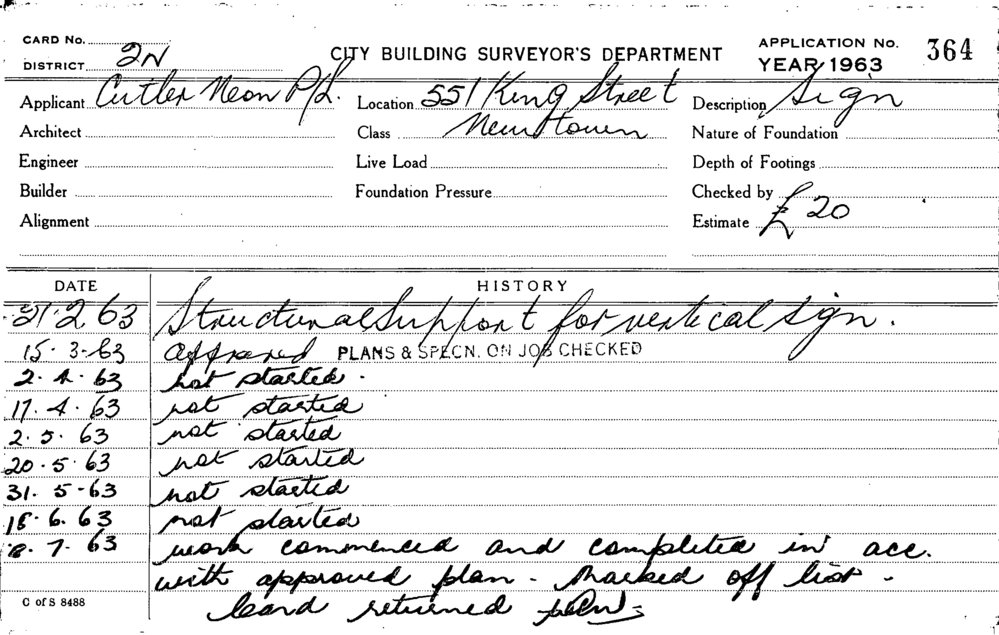 CARD No.
DISTRICT 2N
CITY BUILDING SURVEYOR'S DEPARTMENT
APPLICATION No. 364
YEAR 1963
Applicant Cutler Neon P/L. Location 551 King Street Description Sign
Architect Class Newtown Nature of Foundation
Engineer Live Load Depth of Footings
Builder Foundation Pressure Checked by
Alignment Estimate £20
DATE HISTORY
21.2 63 Structural Support for vertical sign.
15.3-63 Approved PLANS & SPECN. ON JOB CHECKED
2.4.63 not started.
17.4.63 not started
2.5.63 not started
20.5.63 not started
31.5-63 not started
18.6.63 not started
8.7.63 work commenced and completed in acc.
with approved plan - Marked off list -
C of S 8488
card returned